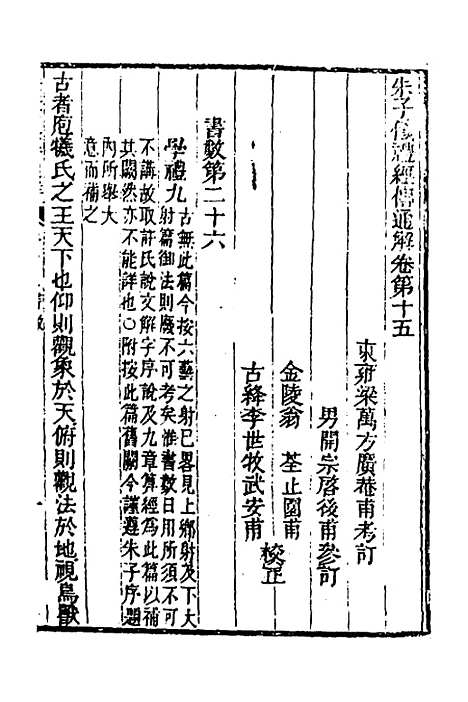 朱子儀禮經傳通解卷第十五
東雍梁萬方廣菴甫考訂
男開宗啓後甫參訂
金陵翁 荃止園甫
古絳李世牧武安甫
校正
書數第二十六
學禮九
古無此篇今按六藝之射已畧見上鄉射及下大
射篇御法則廢不可考矣惟書數日用所須不可
不講故取許氏說文解字序說及九章算經為此篇以補
其闕然亦不能詳也○附按此篇舊闕今謹遵朱子序題
內所舉大
意而補之
古者庖犧氏之王天下也仰則觀象於天俯則觀法於地視鳥獸